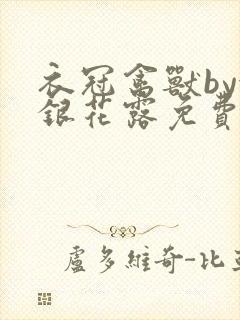 衣冠禽獸by
銀花露免費
盧多維奇-比